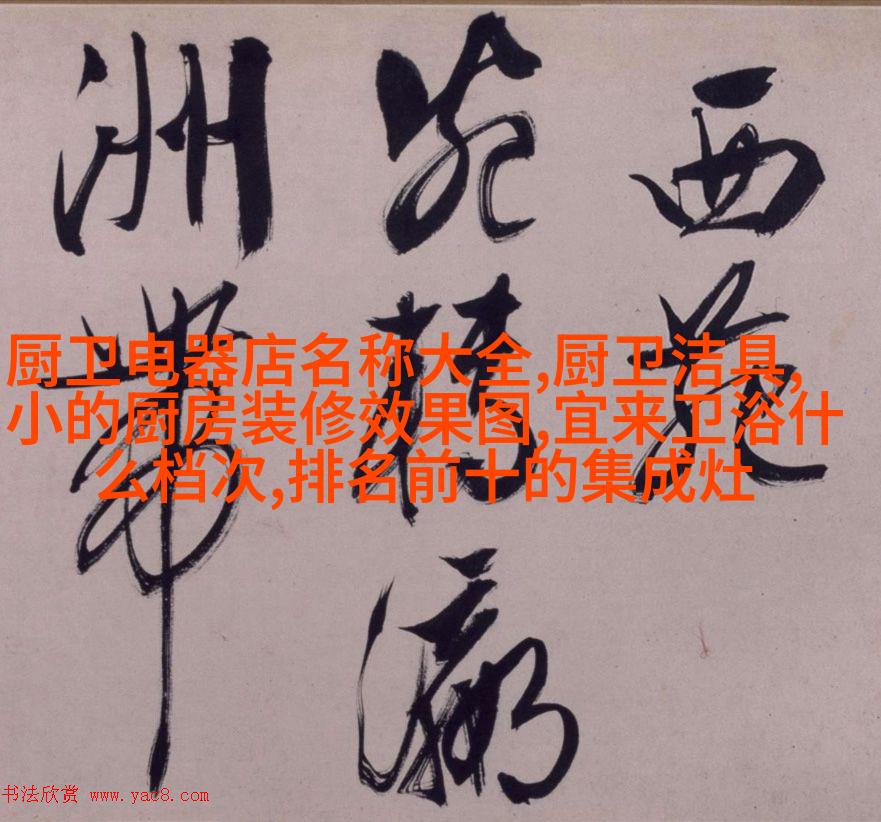 西苑
瀛
洲帶
厨卫电器店名称大全,厨卫洁具,
小的厨房装修效果图,宜来卫浴什
么档次,排名前十的集成灶
书法欣赏 www.yac8.com